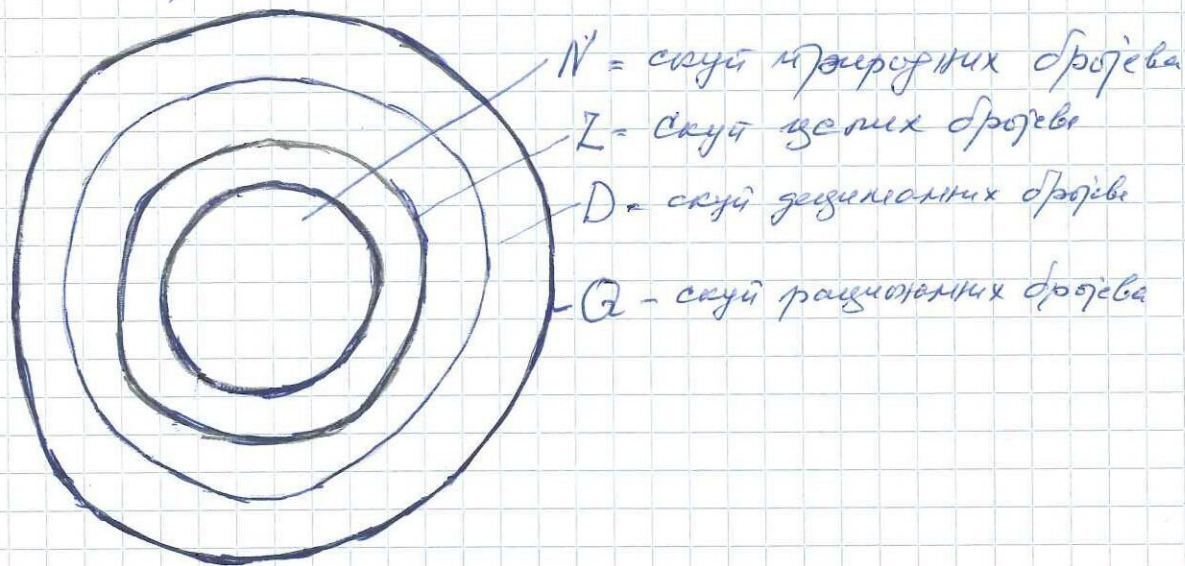 N = скуп природних бројева
Z = скуп целих бројева
D = скуп децималних бројева
Q - скуп рационалних бројева